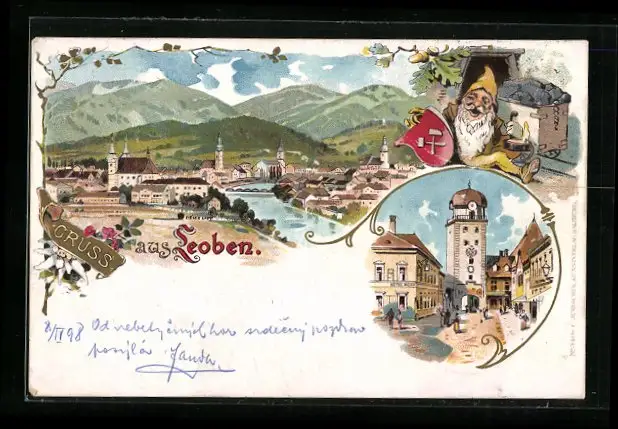 GRUSS
aus Leoben.
8/II 98 Od nebetyčných hor srdečný pozdrav
posílá Janda